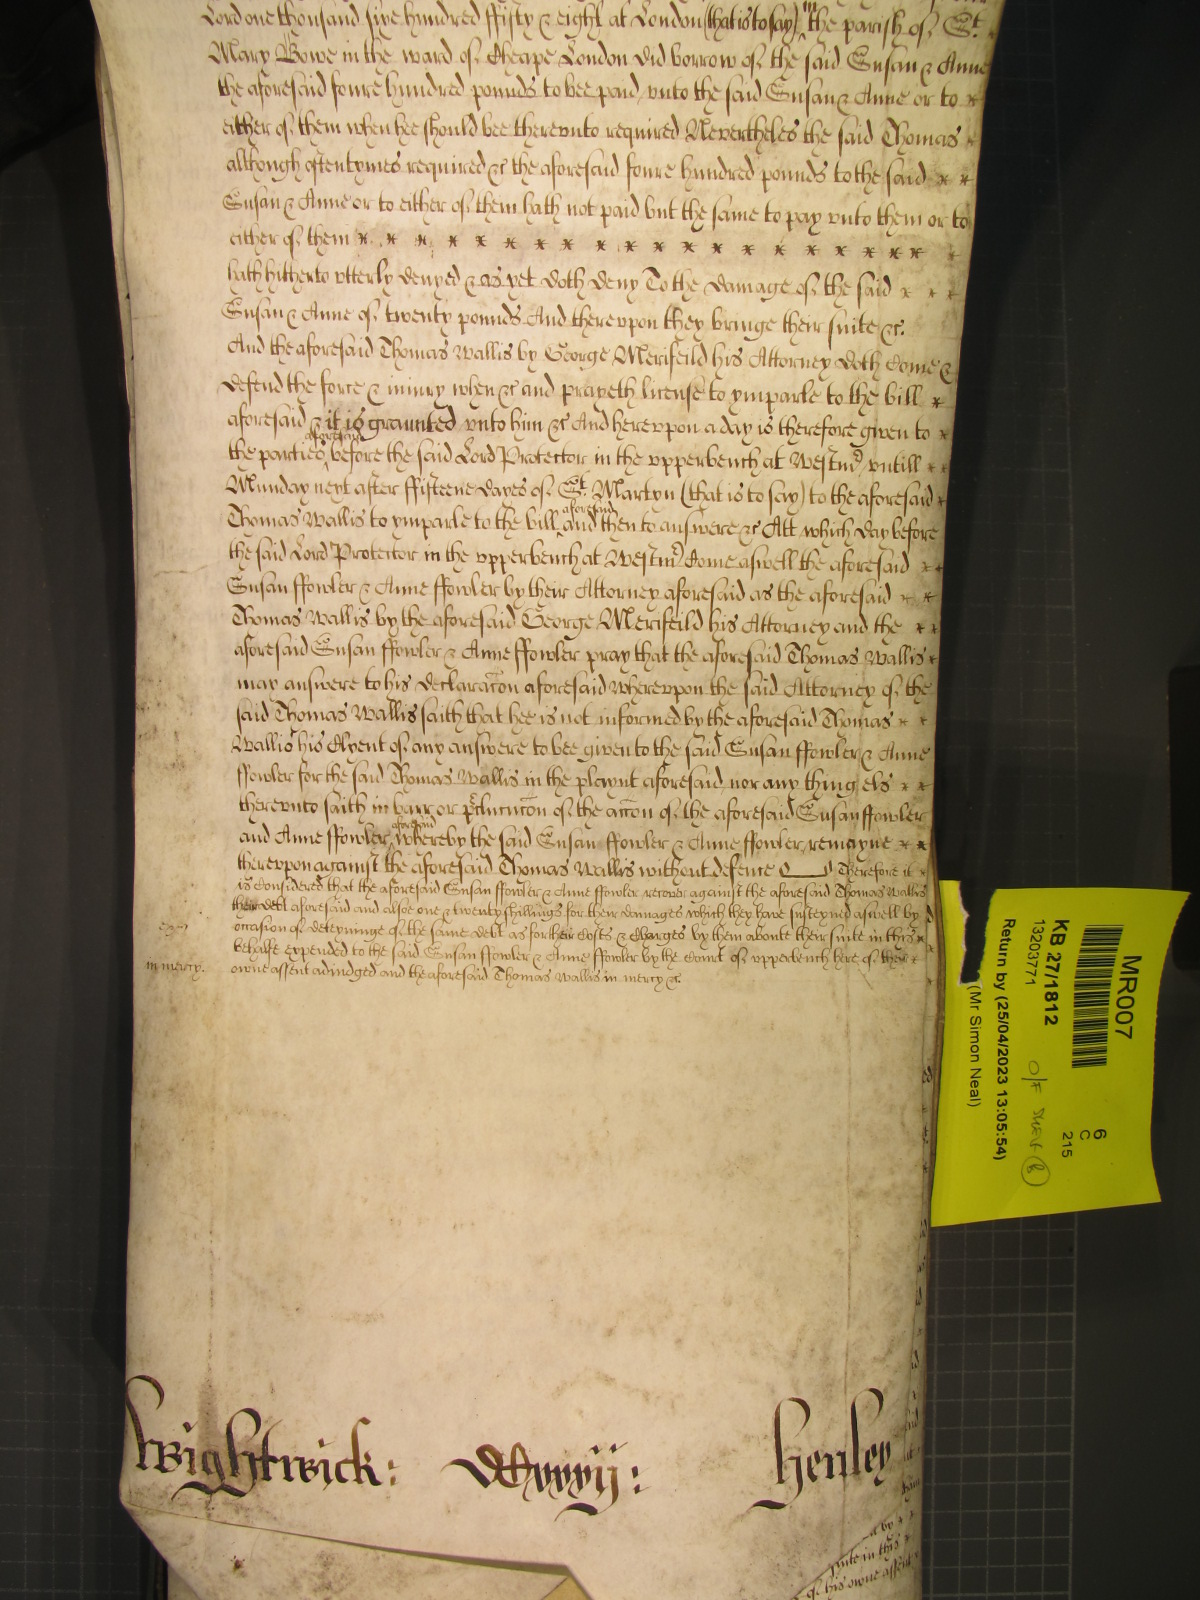 Lord one thousand five hundred ffifty & eight at London (that is to say) in the parish of St.
Mary Bowe in the ward of Cheape London did borrow of the said Susan & Anne
the aforesaid foure hundred pounds to bee paid vnto the said Susan & Anne or to
either of them when hee should bee therevnto required Nevertheles the said Thomas
although oftentymes required &c the aforesaid foure hundred pounds to the said
Susan & Anne or to either of them hath not paid but the same to pay vnto them or to
either of them
hath hitherto vtterly denyed & as yet doth deny To the damage of the said
Susan & Anne of twenty pounds And therevpon they bringe their suite &c.
And the aforesaid Thomas Wallis by George Merifeild his Attorney doth Come &
defend the force & iniury when &c and prayeth license to ymparle to the bill
aforesaid & it is graunted vnto him &c And herevpon a day is therefore given to
the parties aforesaid before the said Lord Protector in the vpperbench at Westmr vntill
Munday next after ffifteene dayes of St. Martyn (that is to say) to the aforesaid
Thomas Wallis to ymparle to the bill aforesaid and then to answere &c Att which day before
the said Lord Protector in the vpperbench at Westmr Come aswell the aforesaid
Susan ffowler & Anne ffowler by their Attorney aforesaid as the aforesaid
Thomas Wallis by the aforesaid George Merifeild his Attorney and the
aforesaid Susan ffowler & Anne ffowler pray that the aforesaid Thomas Wallis
may answere to his declaracon aforesaid wherevpon the said Attorney of the
said Thomas Wallis saith that hee is not informed by the aforesaid Thomas
Wallis his Clyent of any answere to bee given to the said Susan ffowler & Anne
ffowler for the said Thomas Wallis in the playnt aforesaid nor any thing els
therevnto saith in barr or preclucion of the accon of the aforesaid Susan ffowler
and Anne ffowler aforesaid whereby the said Susan ffowler & Anne ffowler remayne
therevpon against the aforesaid Thomas Wallis without defence Therefore it
is Considered that the aforesaid Susan ffowler & Anne ffowler recover against the aforesaid Thomas Wallis
their debt aforesaid and alsoe one & twenty shillings for their damages which they have susteyned aswell by
occasion of deteyninge of the same debt as for their Costs & Charges by them aboute their suite in this
behalfe expended to the said Susan ffowler & Anne ffowler by the Court of vpperbench here of their
in mercy.
owne assent adiudged and the aforesaid Thomas Wallis in mercy &c.
Wightwick:
Henley
MR007
6
C
215
KB 27/1812
13203771
O/F
Return by (25/04/2023 13:05:54)
(Mr Simon Neal)
suite in this
of his owne assent